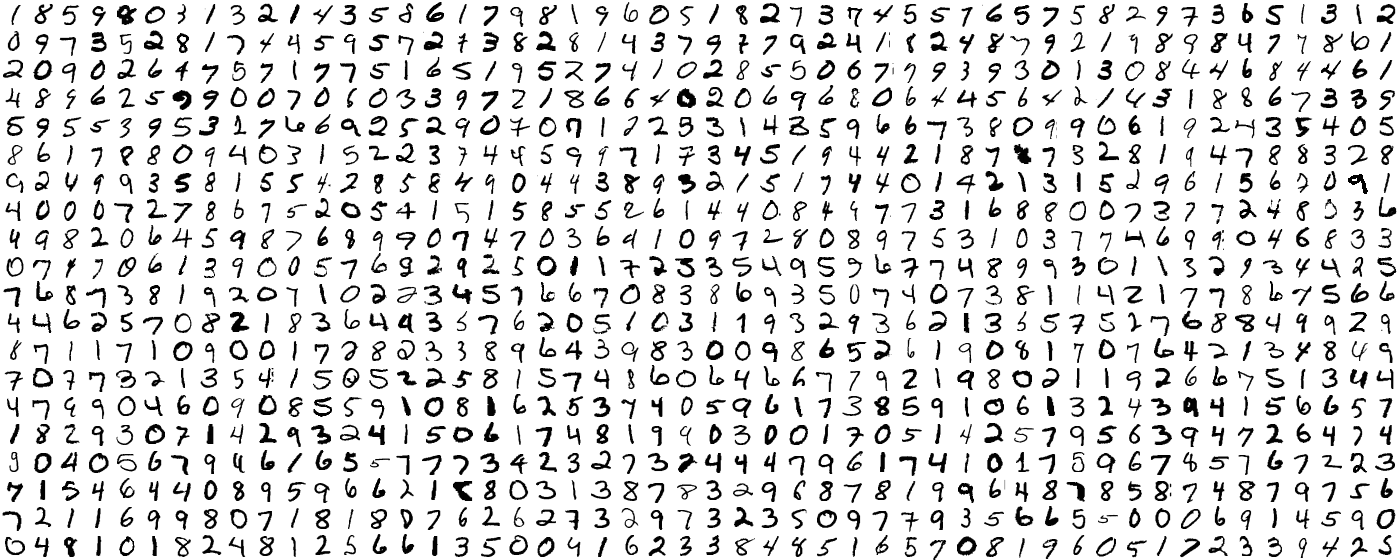 1 8 5 9 8 0 3 1 3 2 1 4 3 5 8 6 1 7 9 8 1 9 6 0 5 1 8 2 7 3 7 4 5 5 7 6 5 7 5 8 2 9 7 3 6 5 1 3 1 2
0 9 7 3 5 2 8 1 7 4 4 5 9 5 7 2 7 3 8 2 8 1 4 3 7 9 7 7 9 2 4 1 8 2 4 8 7 9 2 1 9 8 9 8 4 7 7 8 6 1
2 0 9 0 2 6 4 7 5 7 1 7 7 5 1 6 5 1 9 5 2 7 4 1 0 2 8 5 5 0 6 7 7 9 3 9 3 0 1 3 0 8 4 4 6 8 4 4 6 1
4 8 9 6 2 5 9 9 0 0 7 0 6 0 3 3 9 7 2 1 8 6 6 4 0 2 0 6 9 6 8 0 6 4 4 5 6 4 2 1 4 5 1 8 8 6 7 3 3 9
5 9 5 5 3 9 5 3 2 7 6 6 9 2 5 2 9 0 7 0 7 1 2 2 3 3 1 4 3 5 9 6 6 7 3 8 0 9 9 0 6 1 9 2 4 3 5 4 0 5
8 6 1 7 8 8 0 9 4 0 3 1 5 2 2 3 7 4 4 8 5 9 9 7 1 7 3 4 5 1 9 4 4 2 1 8 7 7 3 2 8 1 9 4 7 8 8 3 2 8
9 2 4 9 9 3 5 8 1 5 5 4 2 8 5 8 4 9 0 4 4 3 8 9 3 2 1 5 1 7 4 4 0 1 4 2 1 3 1 5 2 9 6 1 5 6 7 0 9 1
4 0 0 0 7 2 7 8 6 7 5 2 0 5 4 1 5 1 5 8 5 5 2 6 1 4 4 0 8 4 4 7 7 3 1 6 8 8 0 0 7 3 7 7 2 4 8 0 3 6
4 9 8 2 0 6 4 5 9 8 7 6 8 9 9 9 0 7 4 7 0 3 6 9 1 0 9 7 2 8 0 8 9 7 5 3 1 0 3 7 7 4 6 9 9 0 4 6 8 3 3
0 7 4 7 0 6 1 3 9 0 0 5 7 6 9 2 9 2 5 0 1 1 7 2 5 3 5 4 9 5 9 6 7 7 4 8 9 9 3 0 1 1 3 2 9 3 4 4 2 5
7 6 8 7 3 8 1 9 2 0 7 1 0 2 2 3 4 5 7 6 6 7 0 8 3 8 6 9 3 5 0 7 4 0 7 3 8 1 1 4 2 1 7 7 8 6 7 5 6 6
4 4 6 2 5 7 0 8 2 1 8 3 6 4 9 3 5 7 6 2 0 5 1 0 3 1 1 9 3 2 9 3 6 2 1 3 5 5 7 5 2 7 6 8 8 4 9 9 2 9
8 7 1 1 7 1 0 9 0 0 1 7 2 8 2 3 3 8 9 6 4 3 9 8 3 0 0 9 8 6 5 2 6 1 9 0 8 1 7 0 7 6 4 2 1 3 4 8 4 9
7 0 7 7 3 2 1 3 5 4 1 5 0 5 2 2 5 8 1 5 7 4 8 6 0 6 4 6 6 7 7 9 2 1 9 8 0 2 1 1 9 2 6 6 7 5 1 3 4 4
4 7 9 9 0 4 6 0 9 0 8 5 5 9 1 0 8 1 6 2 5 3 7 4 0 5 9 6 1 7 3 8 5 9 1 0 6 1 3 2 4 3 9 4 1 5 6 6 5 7
1 8 2 9 3 0 7 1 4 2 9 3 2 4 1 5 0 6 1 7 4 8 1 9 9 0 3 0 0 1 7 0 5 1 4 2 5 7 9 5 6 3 9 4 7 2 6 4 7 4
9 0 4 0 5 6 7 9 4 6 1 6 5 5 7 7 7 3 4 2 3 2 7 3 2 4 4 4 7 9 6 1 7 4 1 0 1 7 5 9 6 7 8 5 7 6 7 2 2 3
7 1 5 4 6 4 4 0 8 9 5 9 6 6 2 1 8 0 3 1 3 8 7 8 3 2 9 6 8 7 8 1 9 9 6 4 8 7 8 5 8 7 4 8 7 9 7 5 6
7 2 1 1 6 9 9 8 0 7 1 8 1 8 0 7 6 2 6 2 7 3 2 9 7 3 2 3 5 0 9 7 7 9 3 5 6 6 5 5 0 0 0 6 9 1 4 5 9 0
0 4 8 1 0 1 8 2 4 8 1 2 5 6 6 1 3 5 0 0 4 1 6 2 3 3 8 4 8 5 1 6 5 7 0 8 1 9 6 0 5 1 7 2 3 3 9 4 2 5